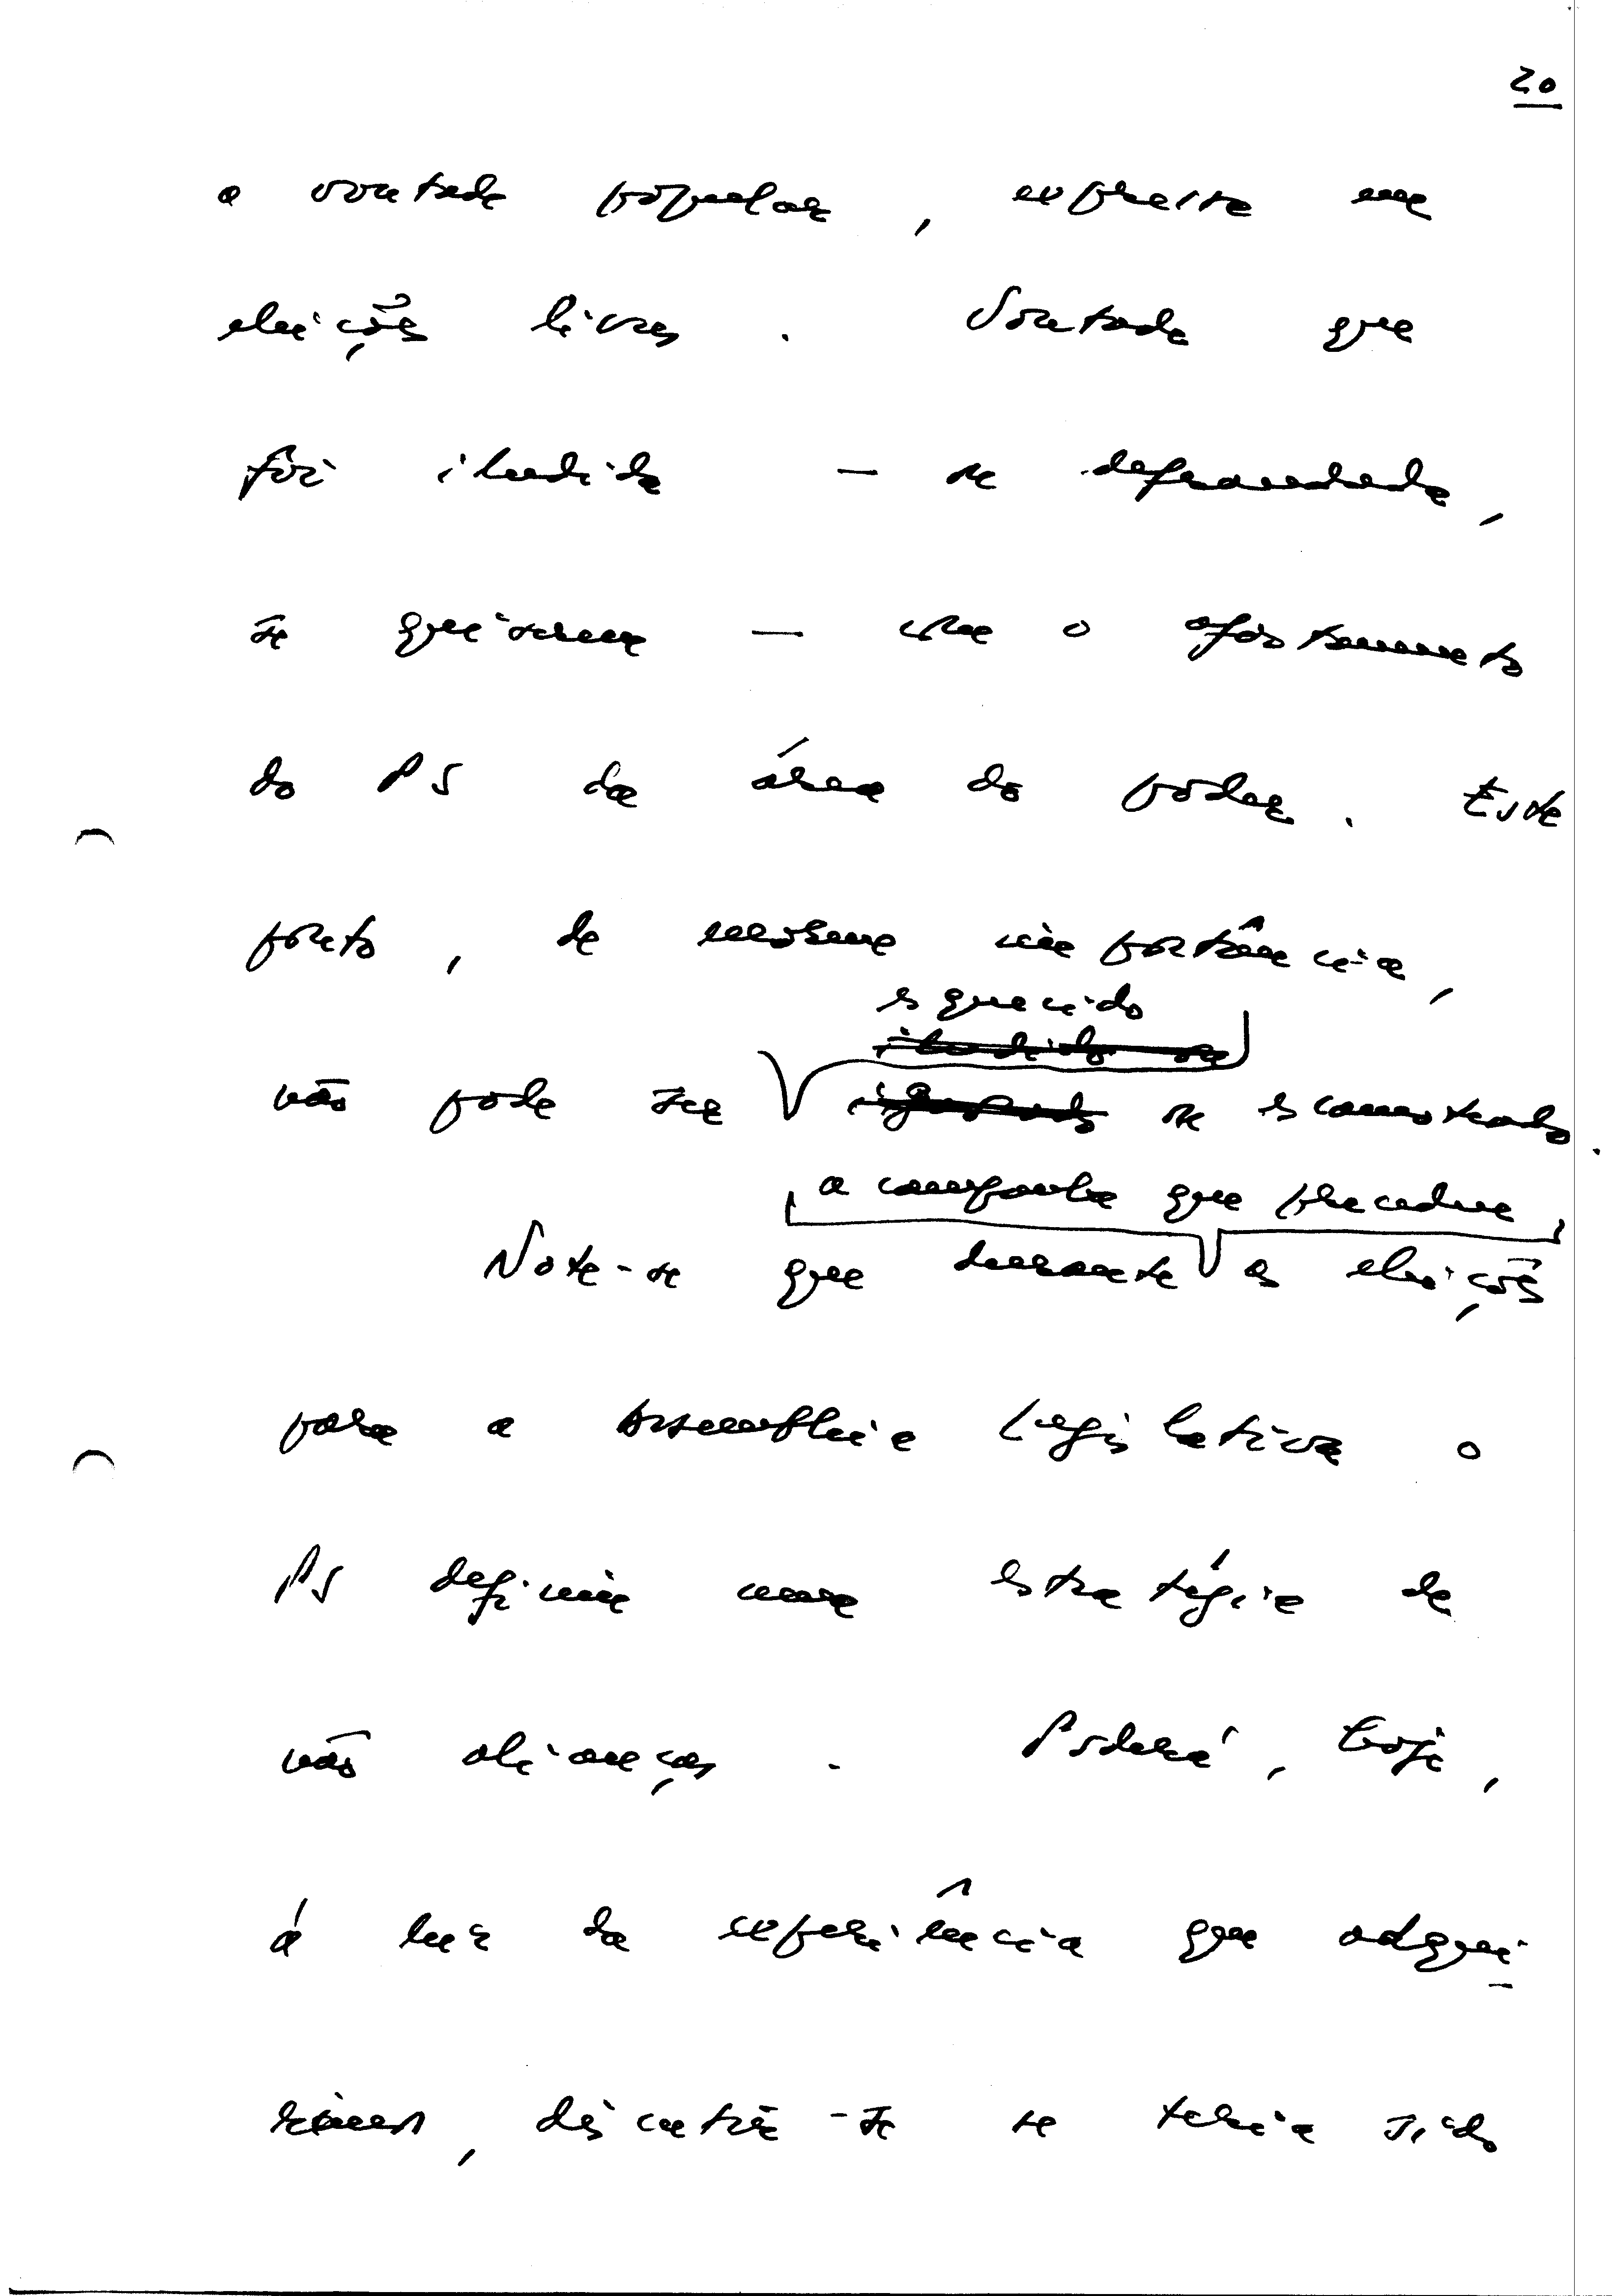 20
a vontade popular, expressa em
eleições livres. Vontade que
foi iludida — se defraudada,
se quiserem — com o afastamento
do PS da área do poder. Este
ponto, de máxima importância,
esquecido
iludido ou
não pode ser ignorado ou escamoteado.
a campanha que precedeu
Note-se que durante as eleições
para a Assembleia Legislativa o
PS definiu uma estratégia de
não alianças. Poderá, hoje,
á luz da experiência que adqui-
rimos, discutir-se se teria sido